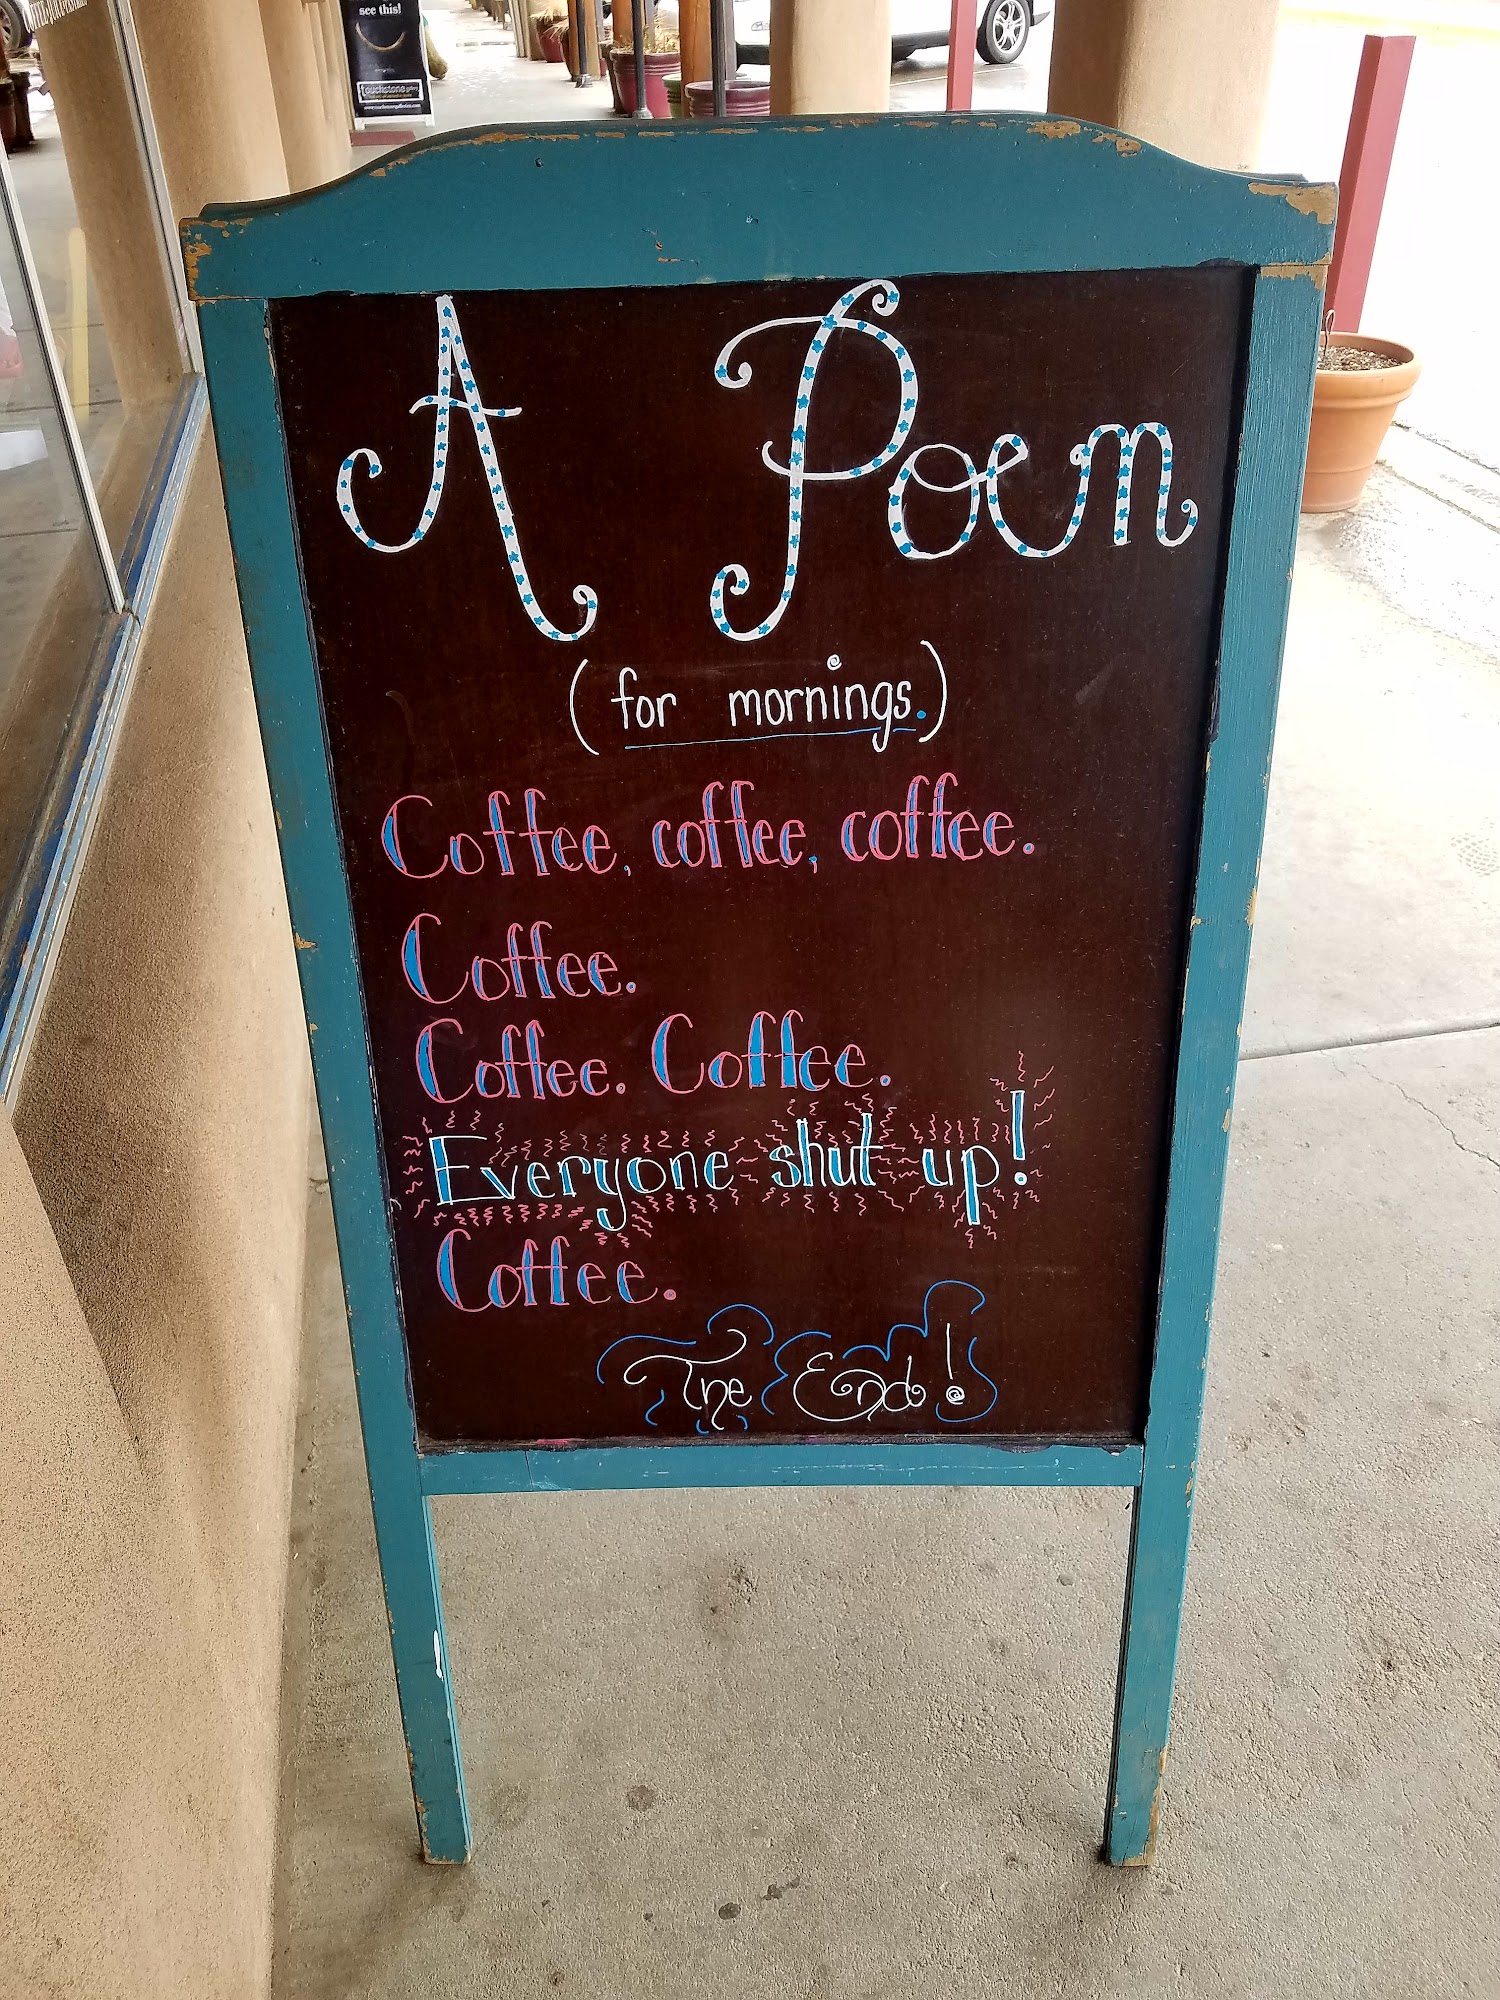 see this!
touchstone gallery
A Poem
(for mornings.)
Coffee, coffee, coffee.
Coffee.
Coffee. Coffee.
Everyone shut up!
Coffee.
The End!